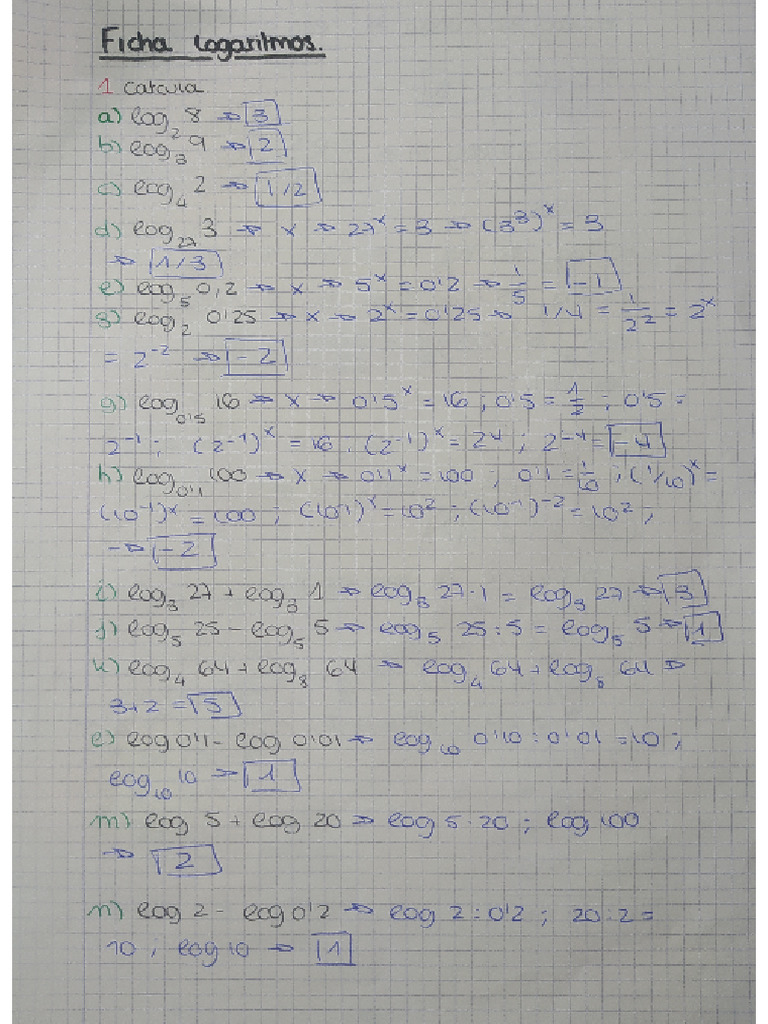 Ficha Logaritmos.
1 Calcula.
a) log₂ 8 => 3
b) log₃ 9 => 2
c) log₄ 2 => 1/2
d) log₂₇ 3 => x => 27ˣ = 3 => (3³)ˣ = 3
=> 1/3
e) log₅ 0,2 => x => 5ˣ = 0'2 => 1/5 = -1
g) log₂ 0'25 => x => 2ˣ = 0'25 => 1/4 = 1/2² = 2ˣ
= 2⁻² => -2
g) log₀'₅ 16 => x => 0'5ˣ = 16 ; 0'5 = 1/2 ; 0'5 =
2⁻¹ ; (2⁻¹)ˣ = 16 . (2⁻¹)ˣ = 2⁴ ; 2⁻⁴ = -4
h) log₀'₁ 100 => x => 0'1ˣ = 100 ; 0'1 = 1/10 ; (1/10)ˣ =
(10⁻¹)ˣ = 100 ; (10⁻¹)ˣ = 10² ; (10⁻¹)⁻² = 10² ;
-> -2
i) log₃ 27 + log₃ 1 => log₃ 27·1 = log₃ 27 => 3
j) log₅ 25 - log₅ 5 => log₅ 25:5 = log₅ 5 => 1
k) log₄ 64 + log₈ 64 => log₄ 64 + log₈ 64 =>
3+2 = 5
l) log 0'1 - log 0'01 => log₁₀ 0'10 : 0'01 = 10 ;
log₁₀ 10 => 1
m) log 5 + log 20 => log 5·20 ; log 100
=> 2
n) log 2 - log 0'2 => log 2 : 0'2 ; 20:2 =
10 ; log 10 => 1